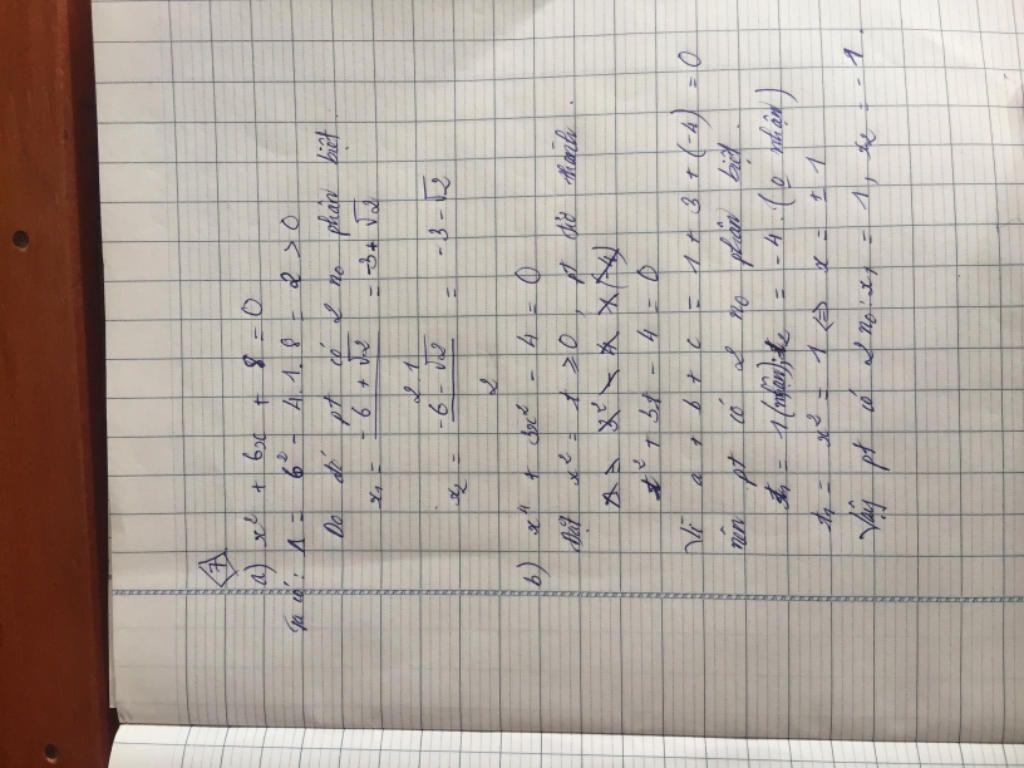 7
a) x² + 6x + 8 = 0
Ta có: Δ = 6² - 4.1.8 = 2 > 0
Do đó pt có 2 no phân biệt.
x₁ = (-6 + √2)/2.1 = -3 + √2
x₂ = (-6 - √2)/2 = -3 - √2
b) x⁴ + 3x² - 4 = 0
Đặt x² = t ≥ 0, pt trở thành
t² + 3t - 4 = 0
Vì a + b + c = 1 + 3 + (-4) = 0
nên pt có 2 no phân biệt.
t₁ = 1 (nhận); t₂ = -4. (o nhận)
t₁ = x² = 1 <=> x = ± 1
Vậy pt có 2 no: x₁ = 1, x₂ = -1.